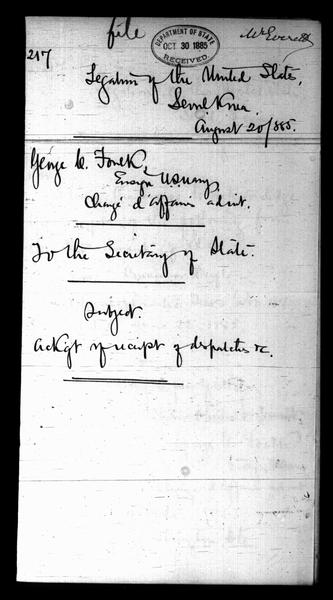 file
Mr Everett
DEPARTMENT OF STATE
OCT 30 1885
RECEIVED
217
Legation of the United States,
Seoul Korea.
August 20/885.
George C. Foulk,
Ensign U.S. Navy,
Chargé d'affaires ad int.
To the Secretary of State.
Subject.
Ackgt of receipt of dispatches &c.